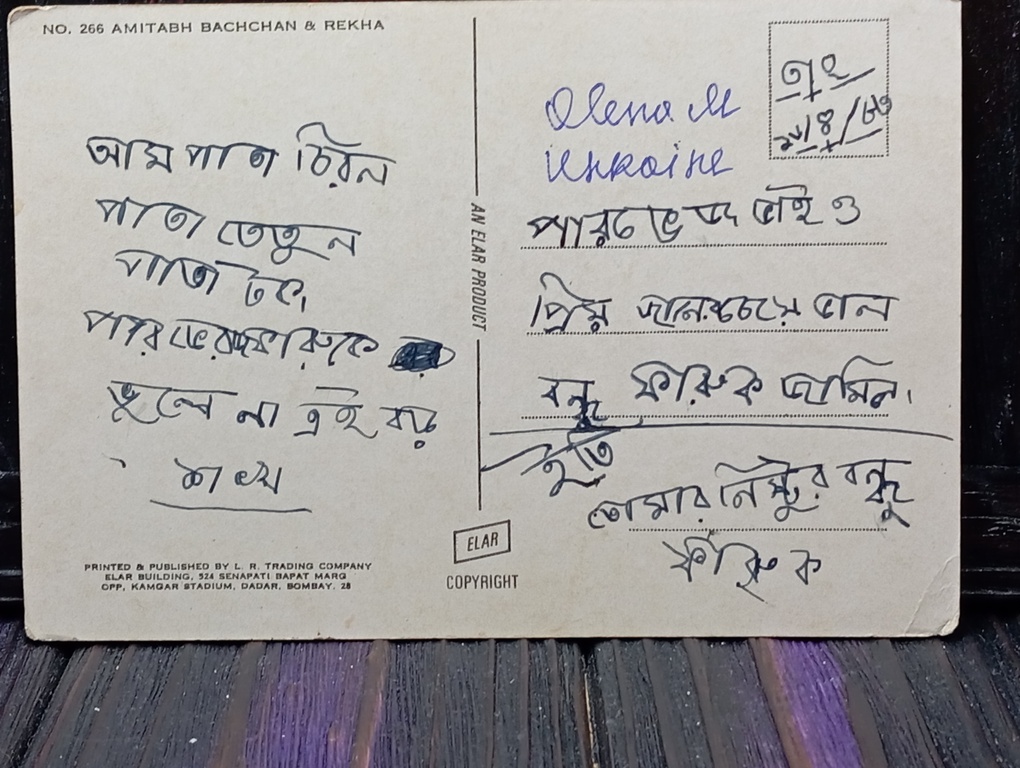 NO. 266 AMITABH BACHCHAN & REKHA
আম পাতা চিরল
পাতা তেতুল
পাতা টক
পারভেজ ফারুককে
ভুলো না এই বড়
Olena M
Ukraine
পারভেজ ভাই ও
প্রিয় ভাল
বন্ধু ফারুক জামিল।
ইতি
তোমার নিষ্টুর বন্ধু
ফারুক
AN ELAR PRODUCT
ELAR
COPYRIGHT
PRINTED & PUBLISHED BY L. R. TRADING COMPANY
ELAR BUILDING, 524 SENAPATI BAPAT MARG
OPP, KAMGAR STADIUM, DADAR, BOMBAY. 28